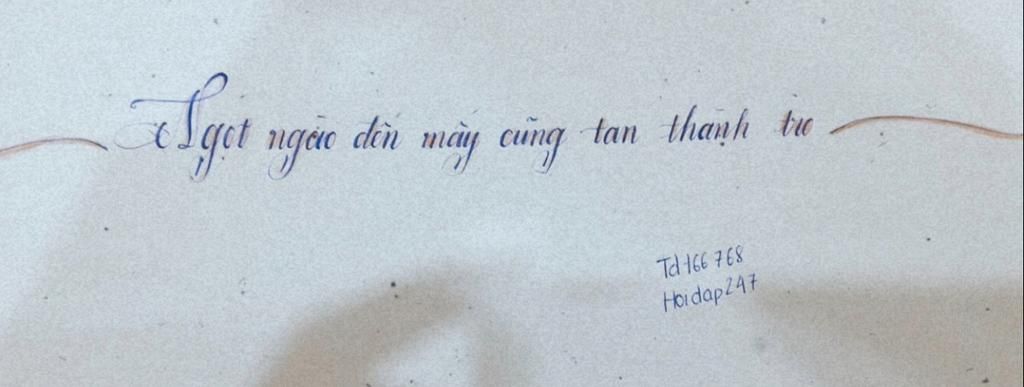 Ngọt ngào đến mấy cũng tan thành tro
Td166768
Hoidap247